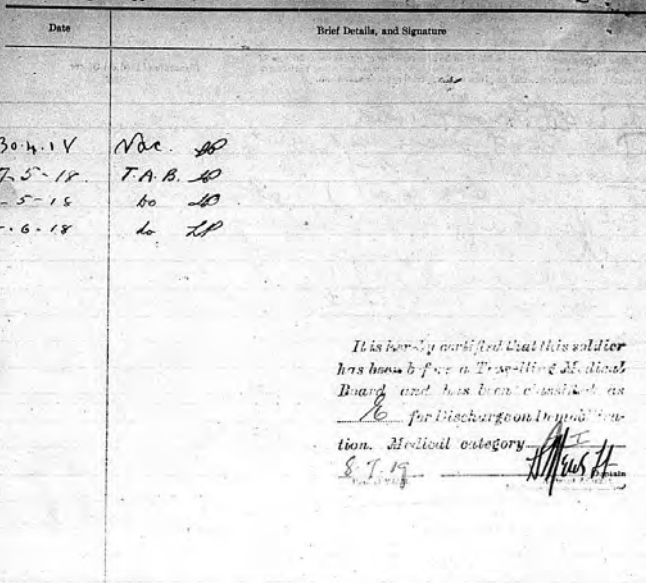 Date Brief Details, and Signature
30.4.18 Vac. LP
7-5-18. T.A.B. LP
-5-18 do LP
-.6.18 do LP
It is hereby certified that this soldier
has been before a Travelling Medical
Board and has been classified as
E for Discharge on Demobilisa-
tion. Medical category I
8.7.19
Captain